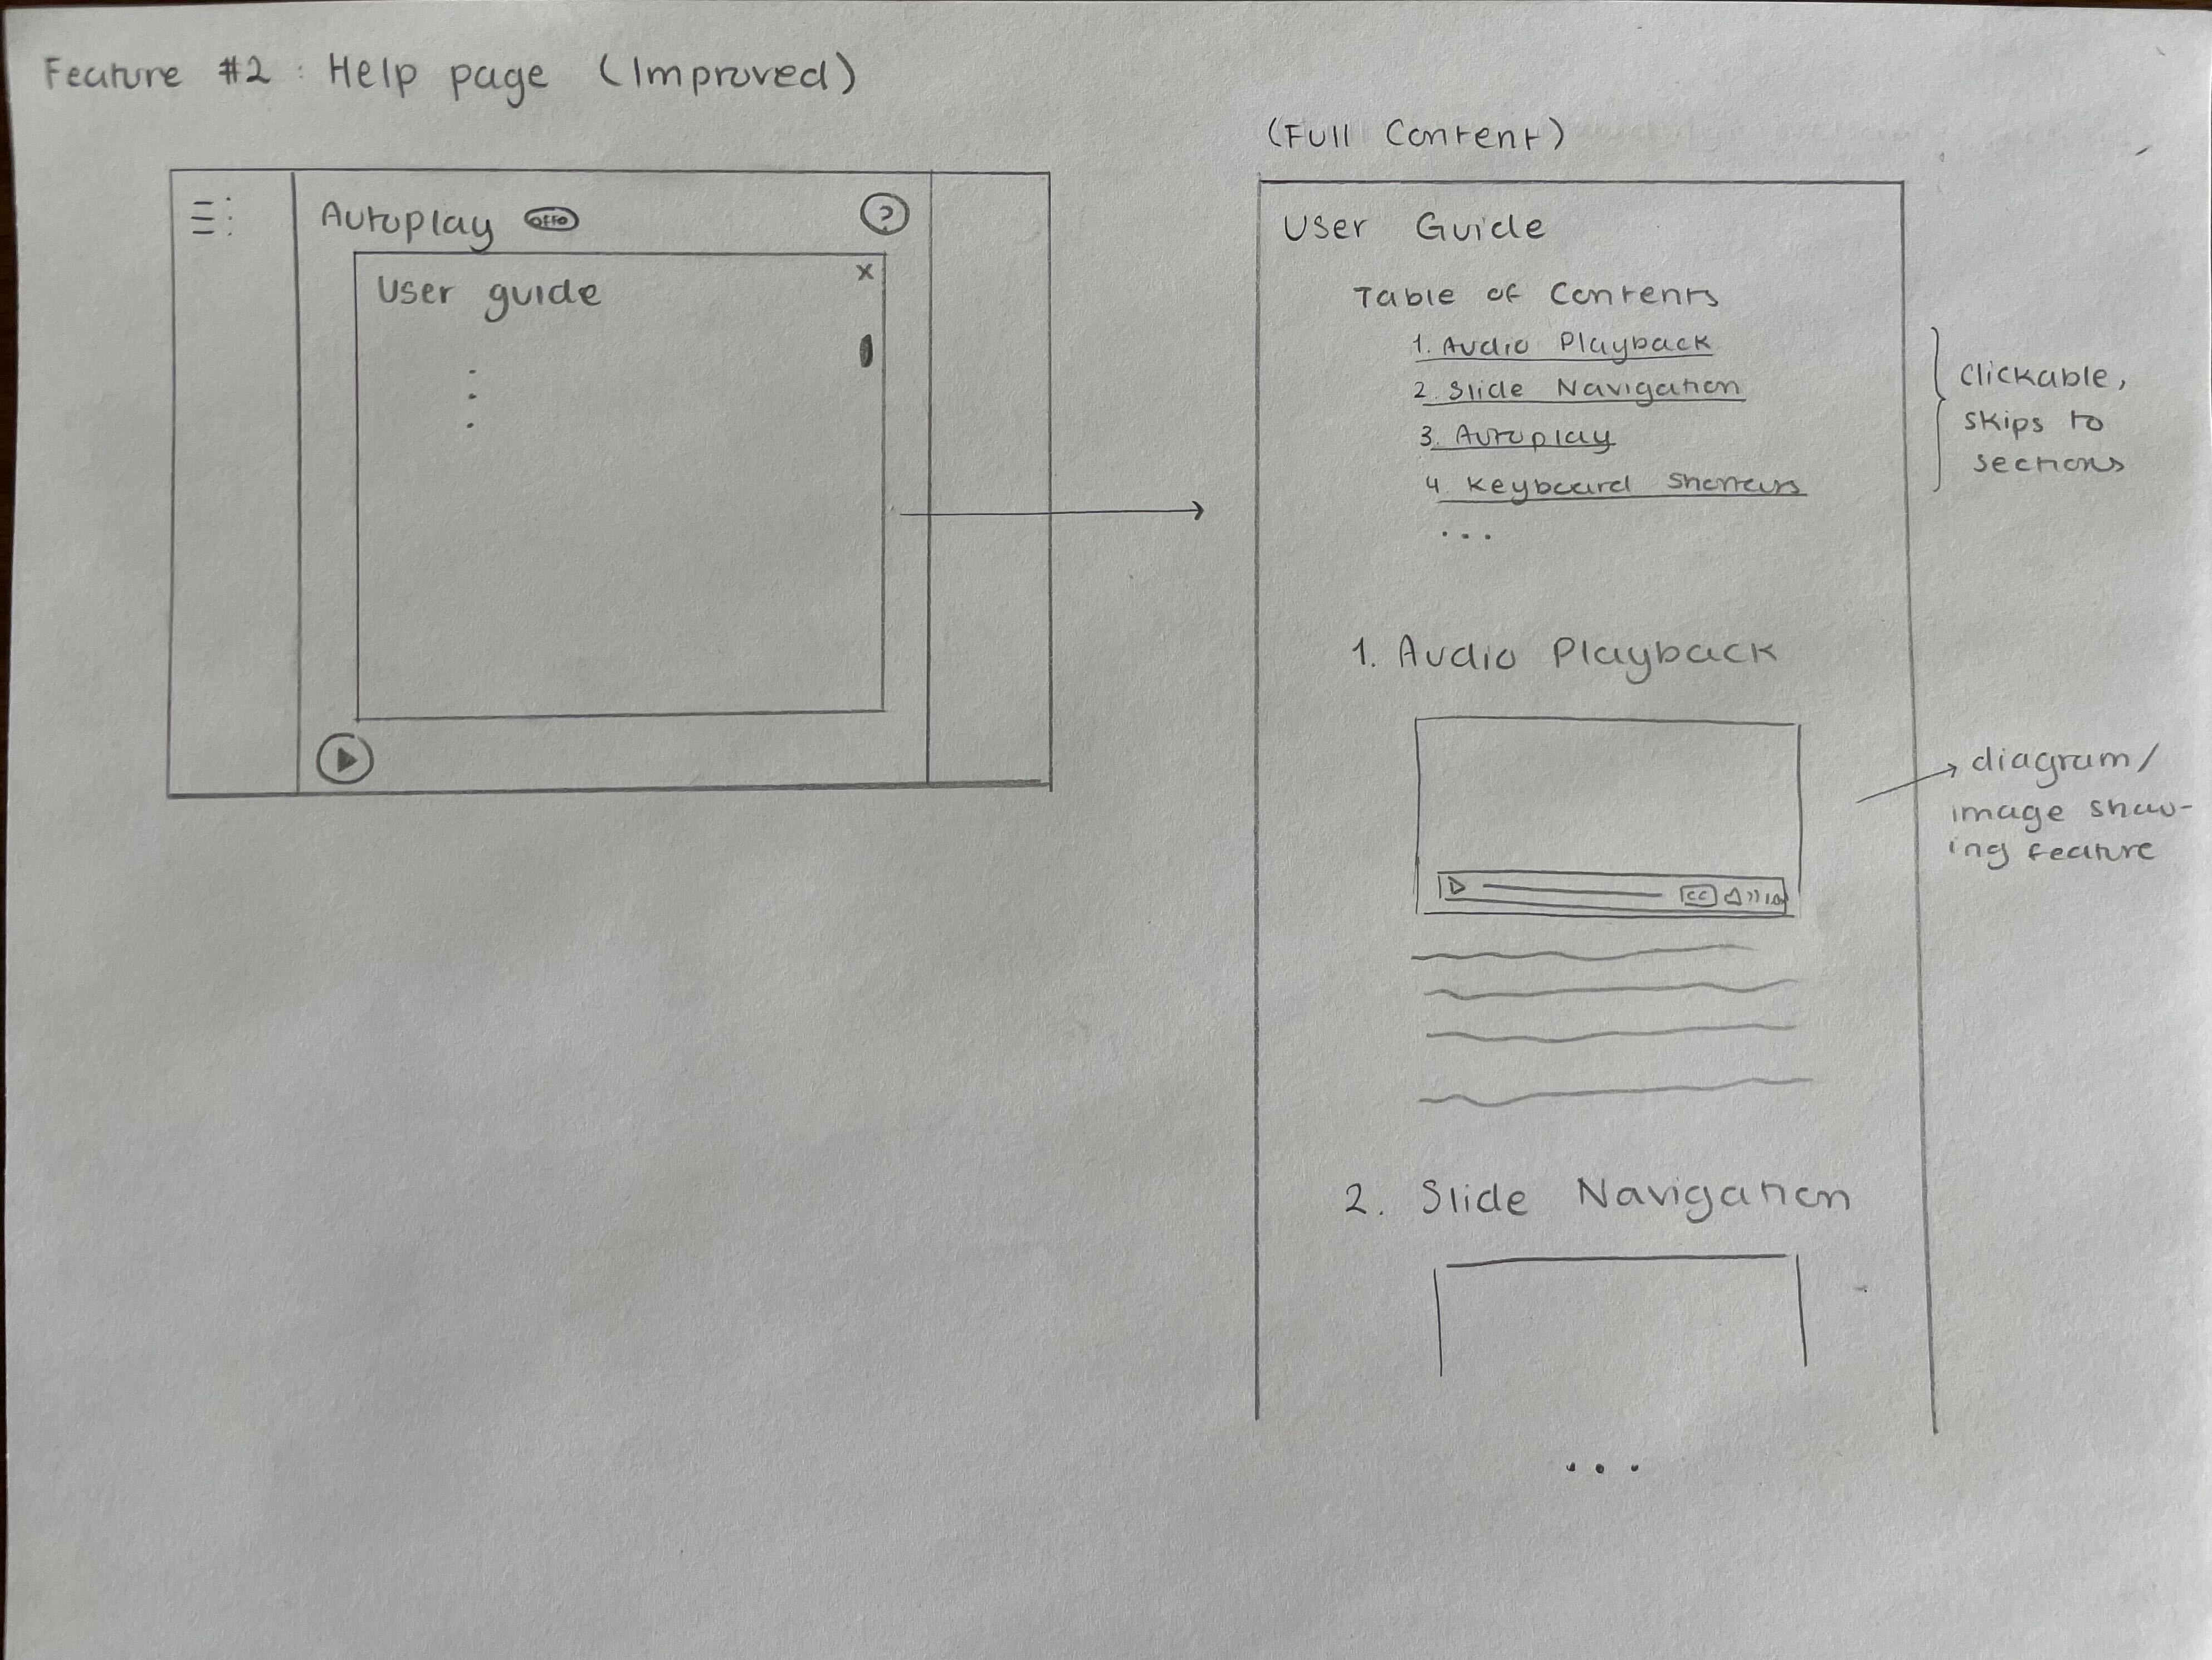 Feature #2 : Help page (Improved)
Autoplay
?
User guide
x
(Full Content)
User Guide
Table of Contents
1. Audio Playback
2. Slide Navigation
3. Autoplay
4. Keyboard Shortcuts
...
clickable,
skips to
sections
1. Audio Playback
diagram/
image show-
ing feature
CC
2. Slide Navigation
...